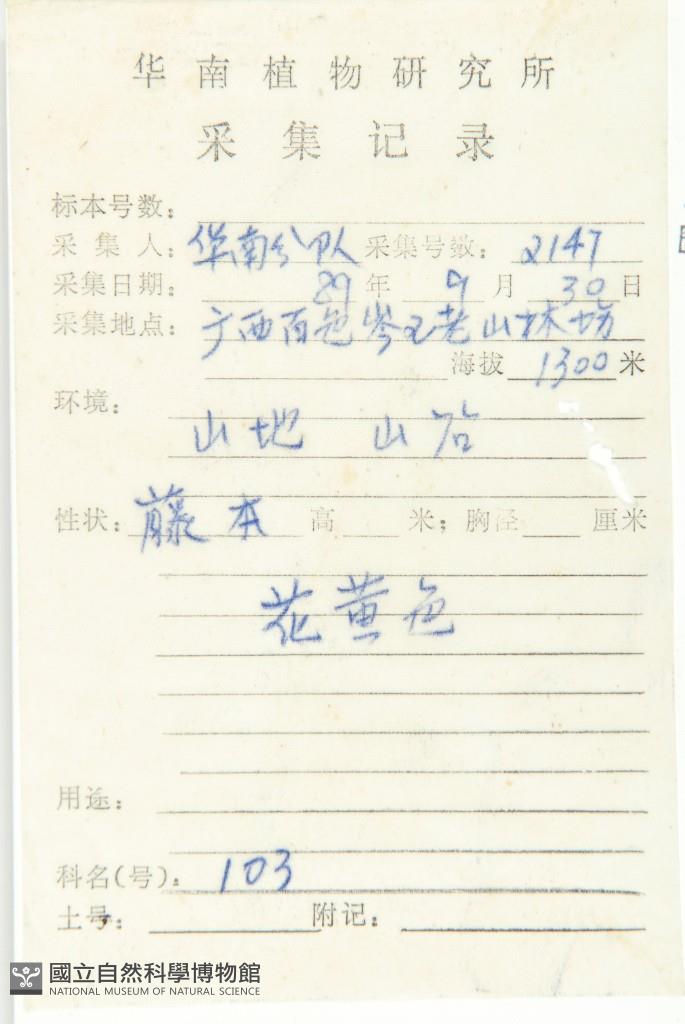 华南植物研究所
采集记录
标本号数:
采集人: 华南分队 采集号数: 2147
采集日期: 89年 9月 30日
采集地点: 广西百色岑王老山林场
海拔 1300 米
环境:
山地 山谷
性状: 藤本 高 米; 胸径 厘米
花黄色
用途:
科名(号): 103
土名: 附记:
國立自然科學博物館
NATIONAL MUSEUM OF NATURAL SCIENCE